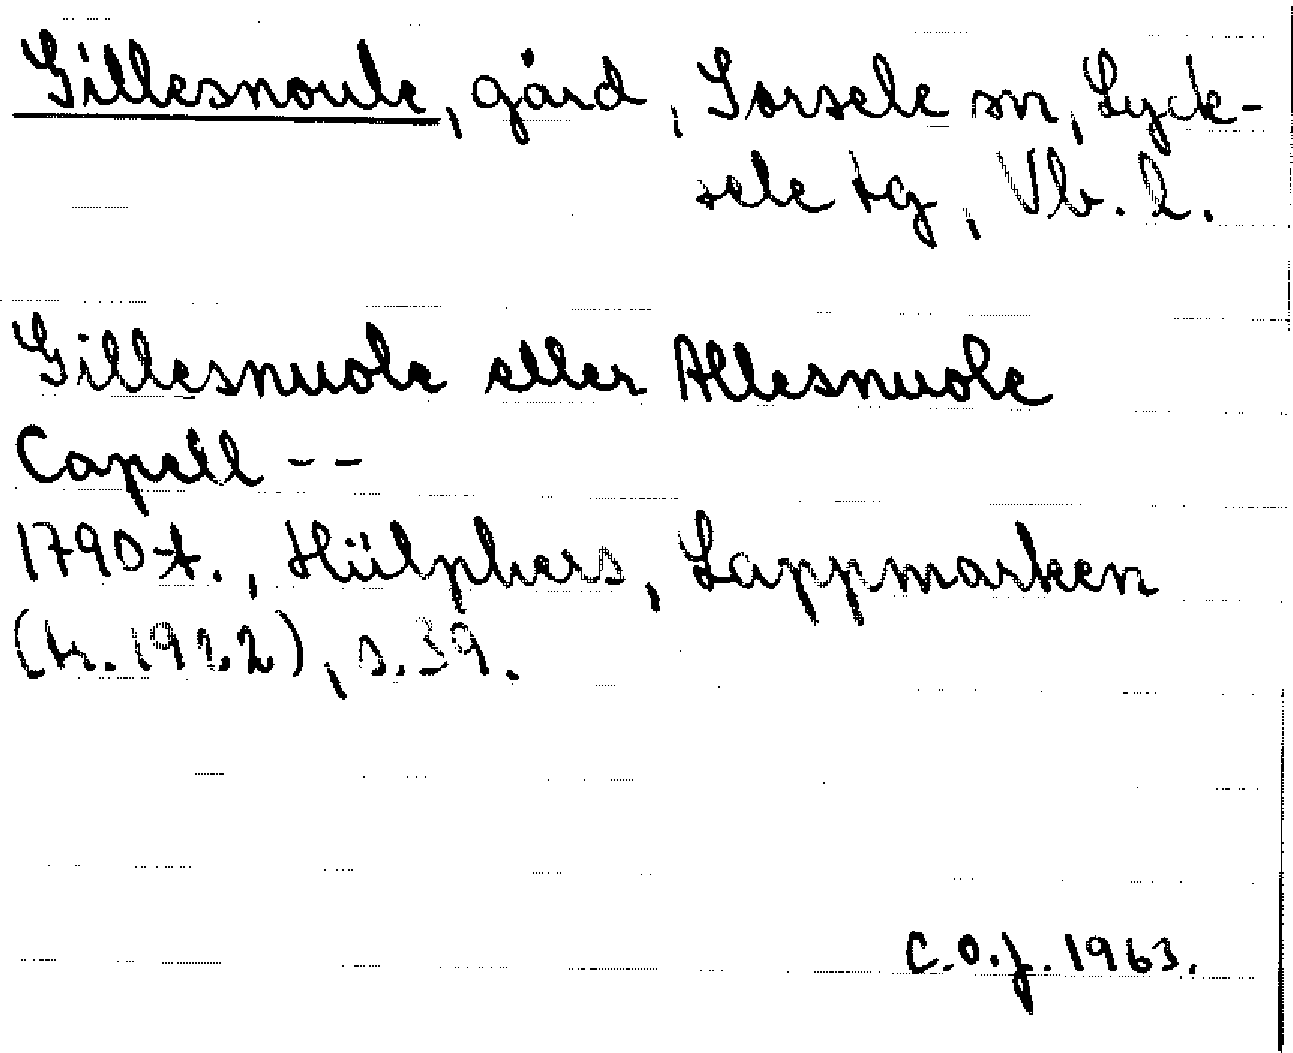 Gillesnoule, gård, Sorsele sn, Lyck-
sele tg, Vb. l.
Gillesnuole eller Allesnuole
Capell --
1790-t., Hülphers, Lappmarken
(tr. 1922), s. 39.
C.O.J. 1963.